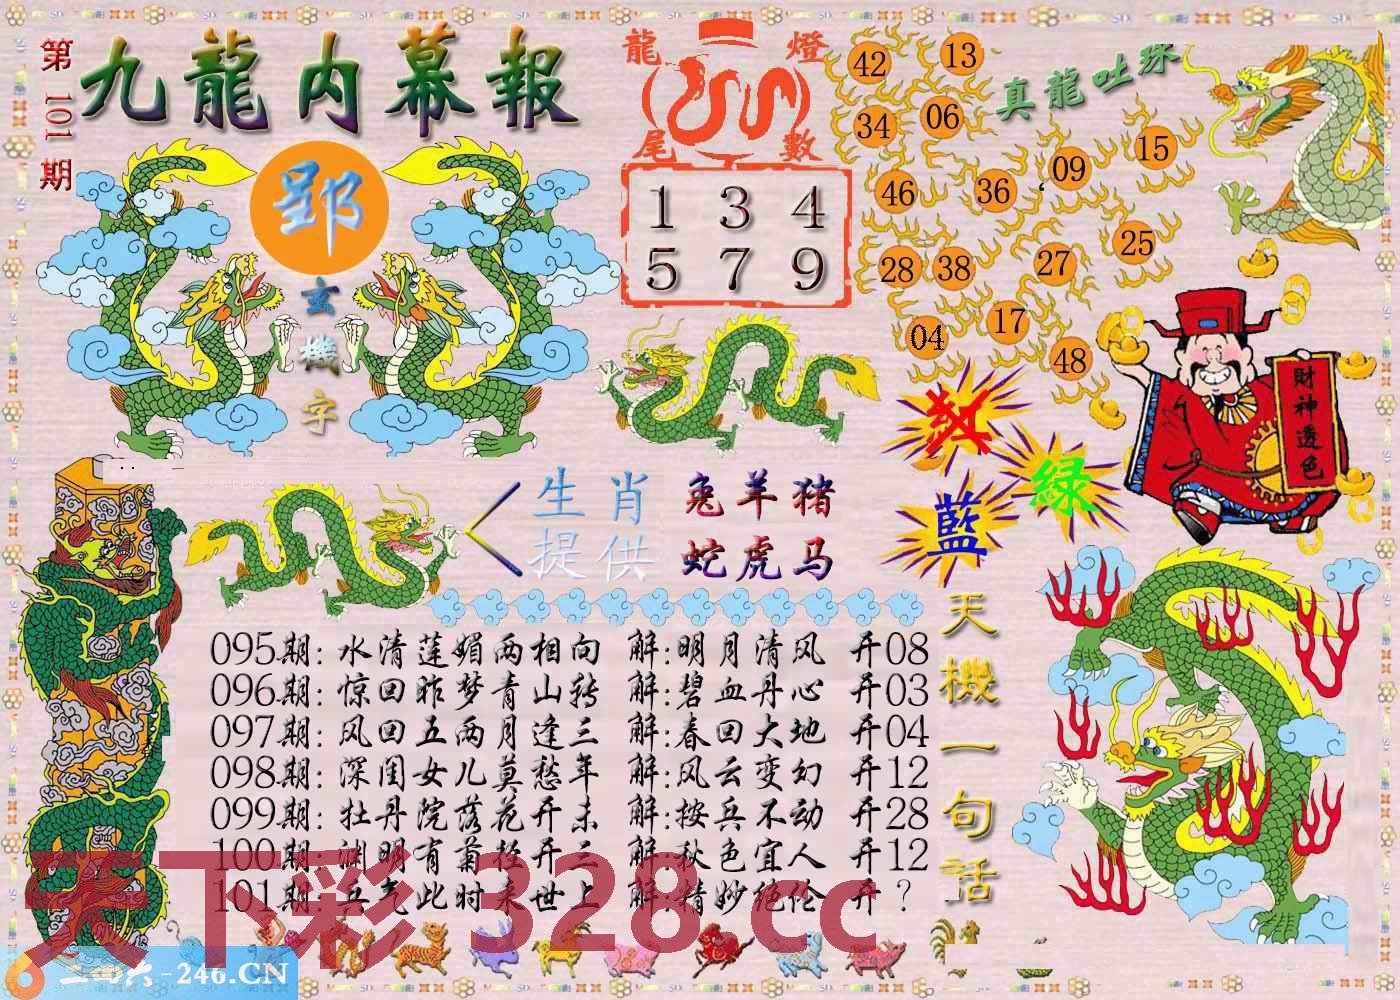 第101期
九龍内幕報
郢
玄機字
龍燈尾數
1 3 4
5 7 9
真龍吐珠
42 13
34 06
46 36 09 15
28 38 27 25
04 17 48
財神透色
紅
綠
藍
生肖 兔羊猪
提供 蛇虎马
天機一句話
095期: 水清莲媚两相向 解:明月清风 开08
096期: 惊回昨梦青山转 解:碧血丹心 开03
097期: 风回五两月逢三 解:春回大地 开04
098期: 深闺女儿莫愁年 解:风云变幻 开12
099期: 牡丹院落花开未 解:按兵不动 开28
100期: 渊明有菊径开三 解:秋色宜人 开12
101期: 五气此时来世上 解:精妙绝伦 开?
天下彩 328.cc
二四六-246.CN